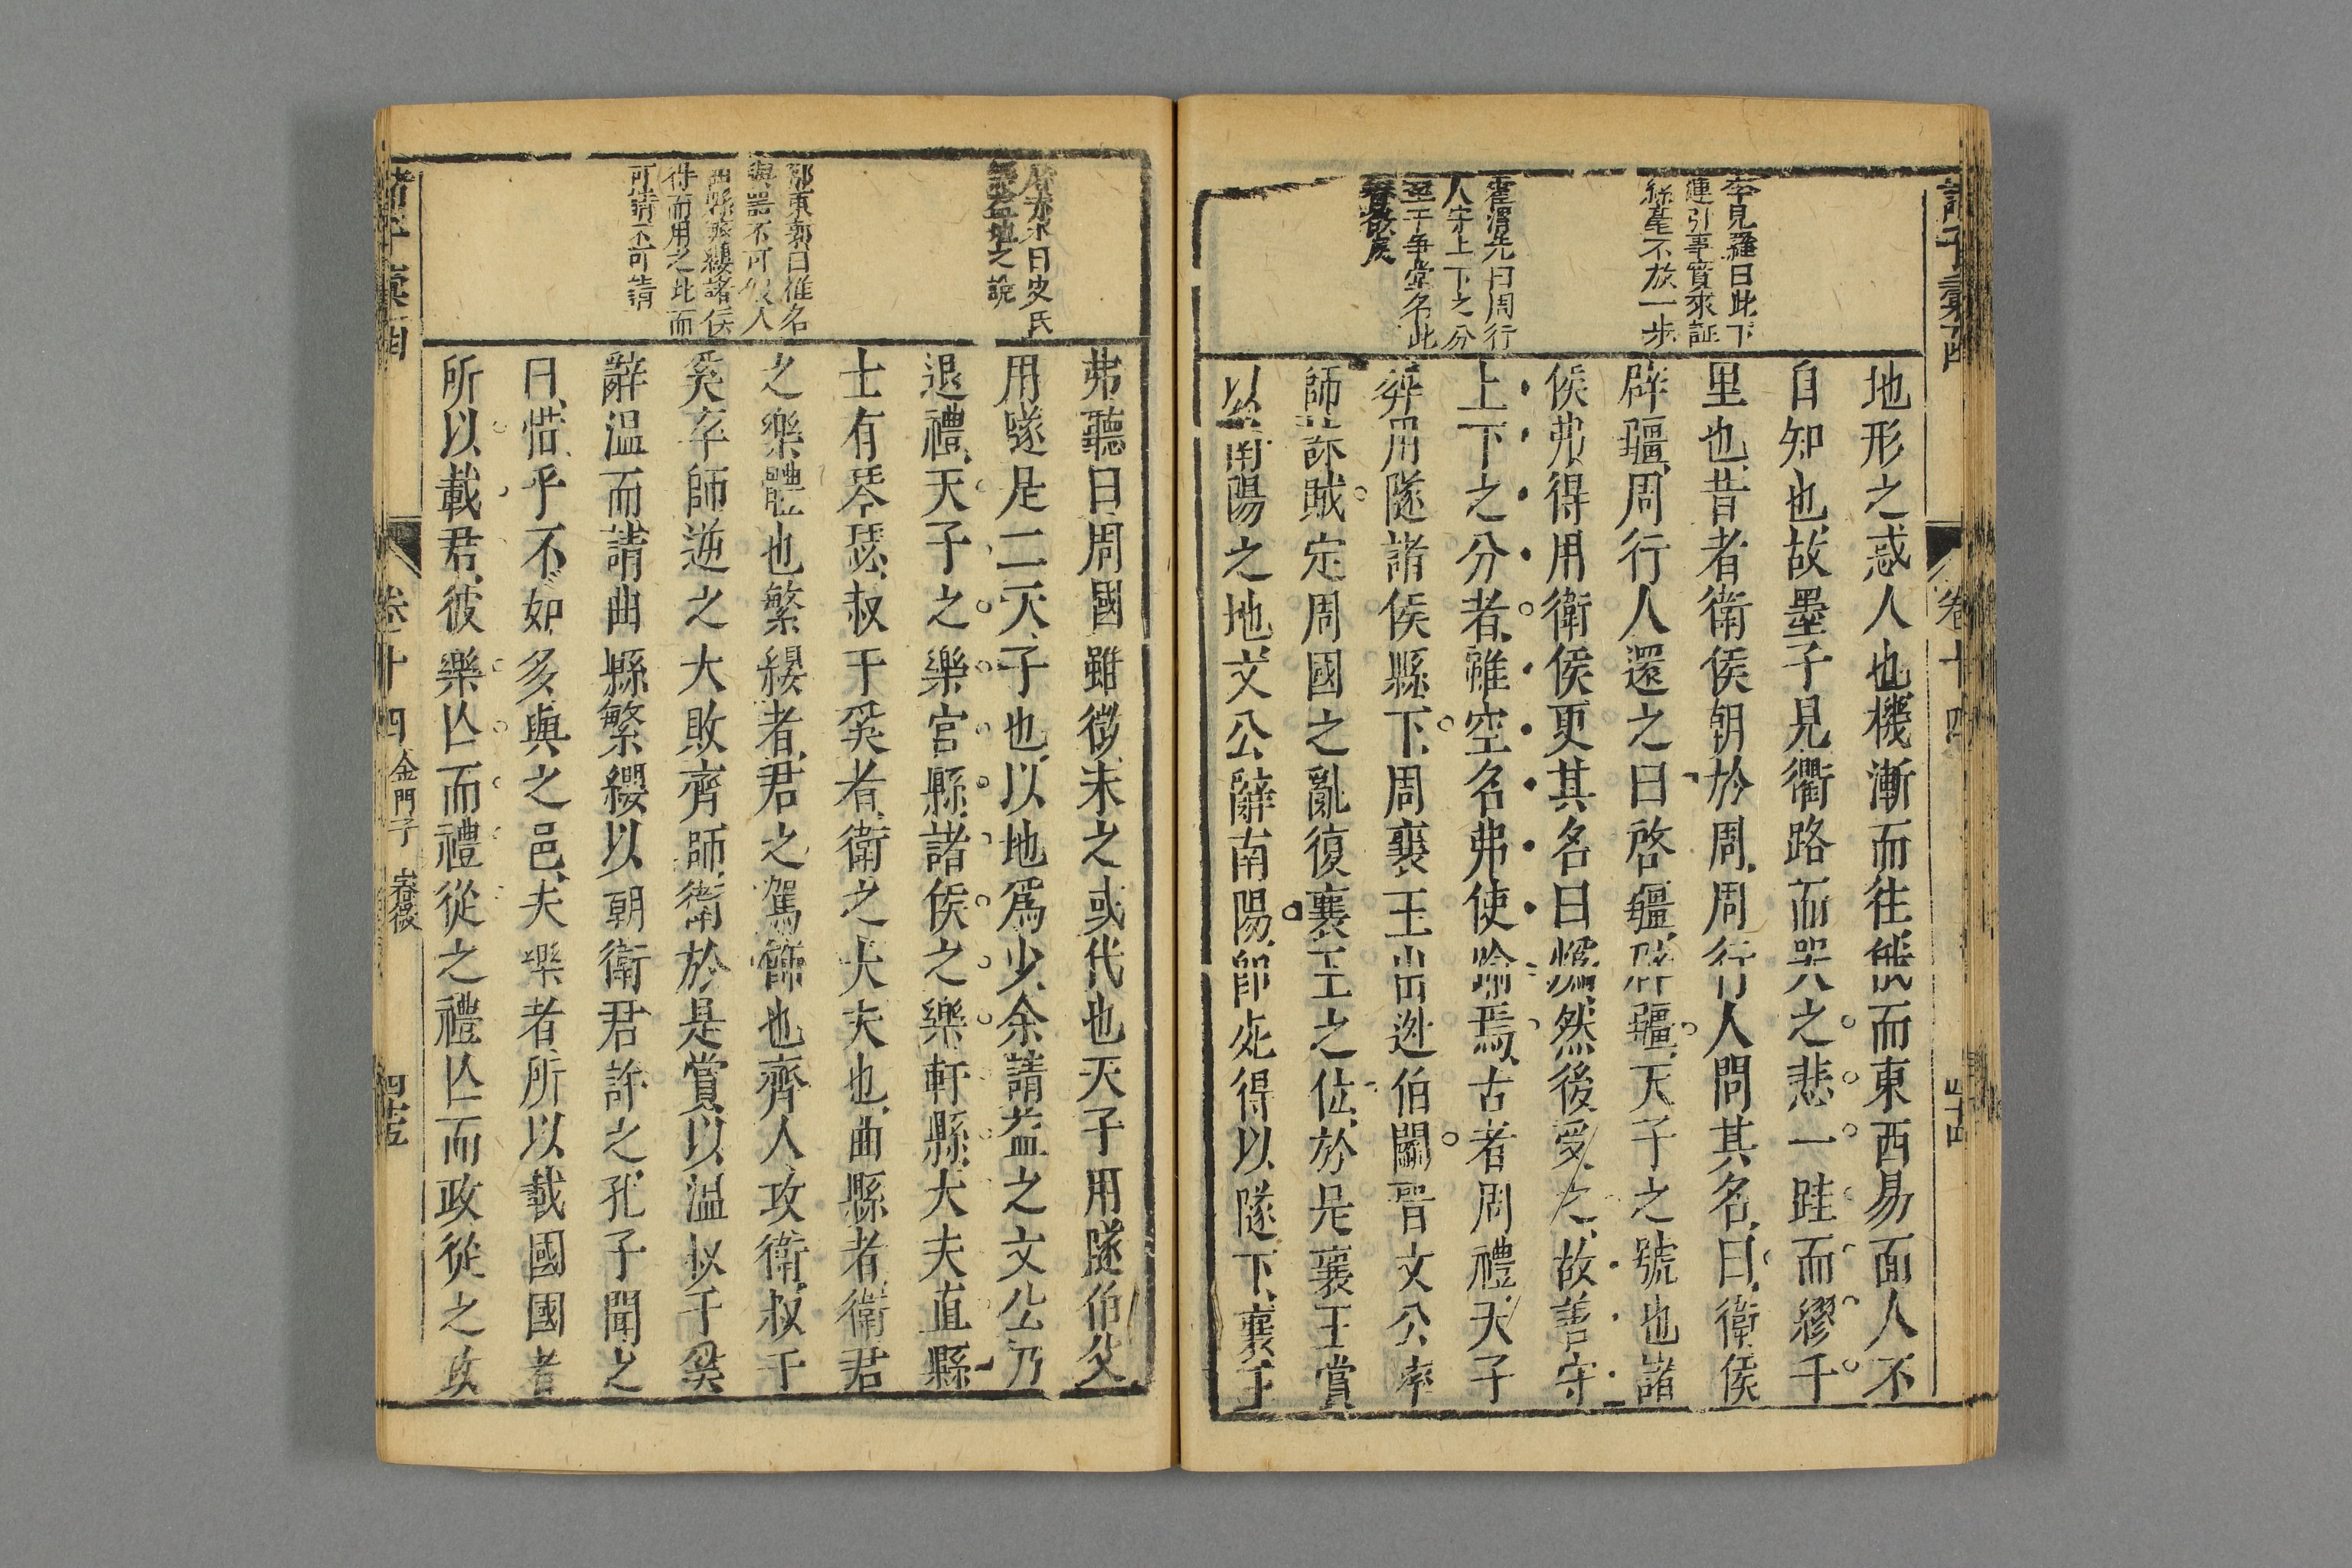 諸子彙函
卷十四
四十四
李見羅曰此下
連引事實來証
絲毫不放一步
霍渭先曰周行
人守上下之分
至于争堂名此
春秋戾
地形之惑人也機漸而往俄而東西易面人不
自知也故墨子見衢路而哭之悲一跬而繆千
里也昔者衛侯朝於周周行人問其名曰衛侯
辟疆周行人還之曰啓疆辟疆天子之號也諸
侯弗得用衛侯更其名曰燬然後受之故善守
上下之分者雖空名弗使踰焉古者周禮天子
葬用隧諸侯縣下周襄王出逃伯鬭晉文公率
師誅賊定周國之亂復襄王之位於是襄王賞
以南陽之地文公辭南陽即死得以隧下襄王
史氏
益地之說
郭東郭曰惟名
與器不可假人
曲縣繁纓諸侯
件而用之此而
可請不可請
弗聽曰周國雖微未之或代也天子用隧伯父
用隧是二天子也以地爲少余請益之文公乃
退禮天子之樂宫縣諸侯之樂軒縣大夫直縣
士有琴瑟叔于奚者衛之大夫也曲縣者衛君
之樂體也繁纓者君之駕飾也齊人攻衛叔于
奚率師逆之大敗齊師衛於是賞以温叔于奚
辭温而請曲縣繁纓以朝衛君許之孔子聞之
曰惜乎不如多與之邑夫樂者所以載國國者
所以載君彼樂亾而禮從之禮亾而政從之政
諸子彙函
卷十四 金門子 審微
四十五